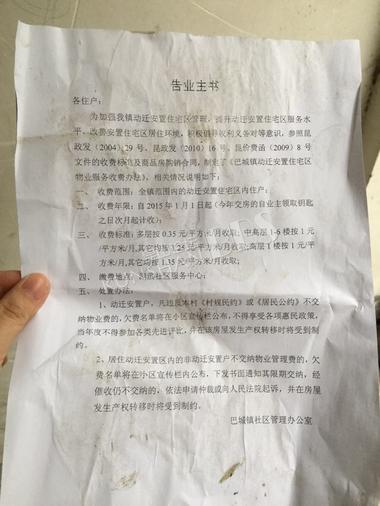 告业主书
各住户：
为加强我镇动迁安置住宅区管理，提升动迁安置住宅区服务水
平、改善安置住宅区居住环境，积极倡导权利义务对等意识，参照昆
政发（2004）29 号、昆政发（2010）16 号、昆价费函（2009）8 号
文件的收费标准及商品房购销合同，制定了《巴城镇动迁安置住宅区
物业服务收费办法》，相关情况说明如下：
一、 收费范围：全镇范围内的动迁安置住宅区内住户；
二、 收费年限：自 2015 年 1 月 1 日起（今年交房的自业主领取钥匙
之日次月起计收）；
三、 收费标准：多层按 0.35 元/平方米/月收取；中高层 1-6 楼按 1 元
/平方米/月,其它均按 1.25 元/平方米/月收取;高层 1 楼按 1 元/平
方米/月,其它均按 1.35 元/平方米/月收取；
四、 缴费地点：社区服务中心；
五、 处置办法：
1、动迁安置户，凡违反本村《村规民约》或《居民公约》不交
纳物业费的，欠费名单将在小区宣传栏内公布，不得享受各项惠民政策，
当年度不得参加各类先进评比，并在该房屋发生产权转移时将受到制
约。
2、居住动迁安置区内的非动迁安置户不交纳物业管理费的，欠
费名单将在小区宣传栏内公布，下发书面通知其限期交纳，经
催收仍不交纳的，依法申请仲裁或向人民法院起诉，并在房屋
发生产权转移时将受到制约。
巴城镇社区管理办公室